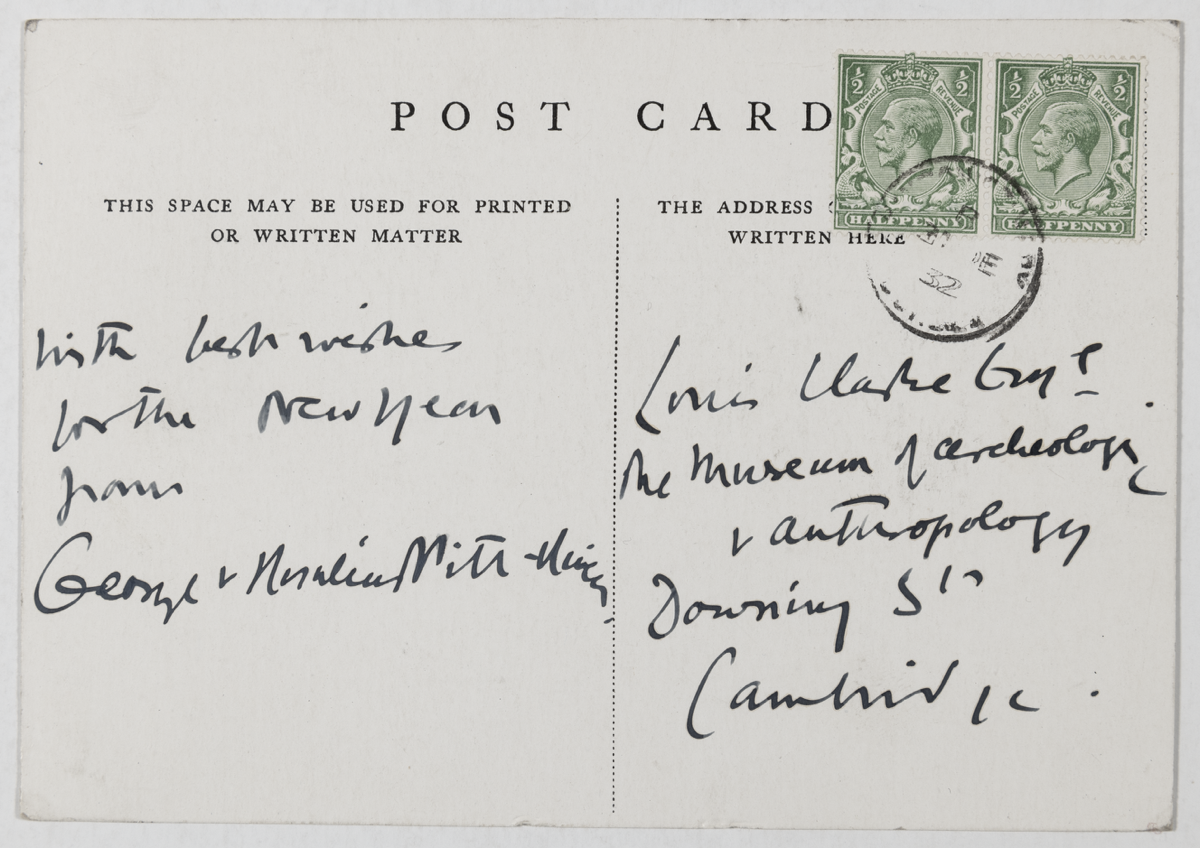 POST CARD
THIS SPACE MAY BE USED FOR PRINTED
OR WRITTEN MATTER
With best wishes
for the New Year
from
George & Rosalind Pitt-Rivers
THE ADDRESS
WRITTEN HERE
½ ½
POSTAGE REVENUE
HALFPENNY
½ ½
POSTAGE REVENUE
HALFPENNY
32
Louis Clarke Esqre
The Museum of archeology
& anthropology
Downing St
Cambridge.